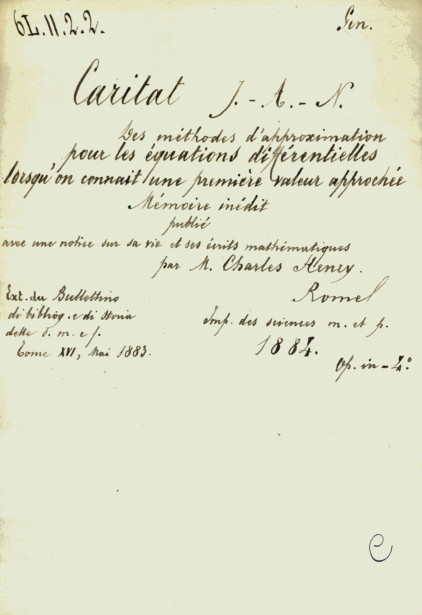 6L.11.2.2. Gen.
Caritat J. - A. - N.
Des méthodes d'approximation
pour les équations différentielles
lorsqu'on connait une première valeur approchée
Mémoire inédit
publié
avec une notice sur sa vie et ses écrits mathématiques
par M. Charles Henry.
Ext. du Bullettino Rome
di bibliog. e di storia Imp. des sciences m. et p.
delle s. m. e f. 1884.
Tome XVI, Mai 1883. Op. in-4°
C